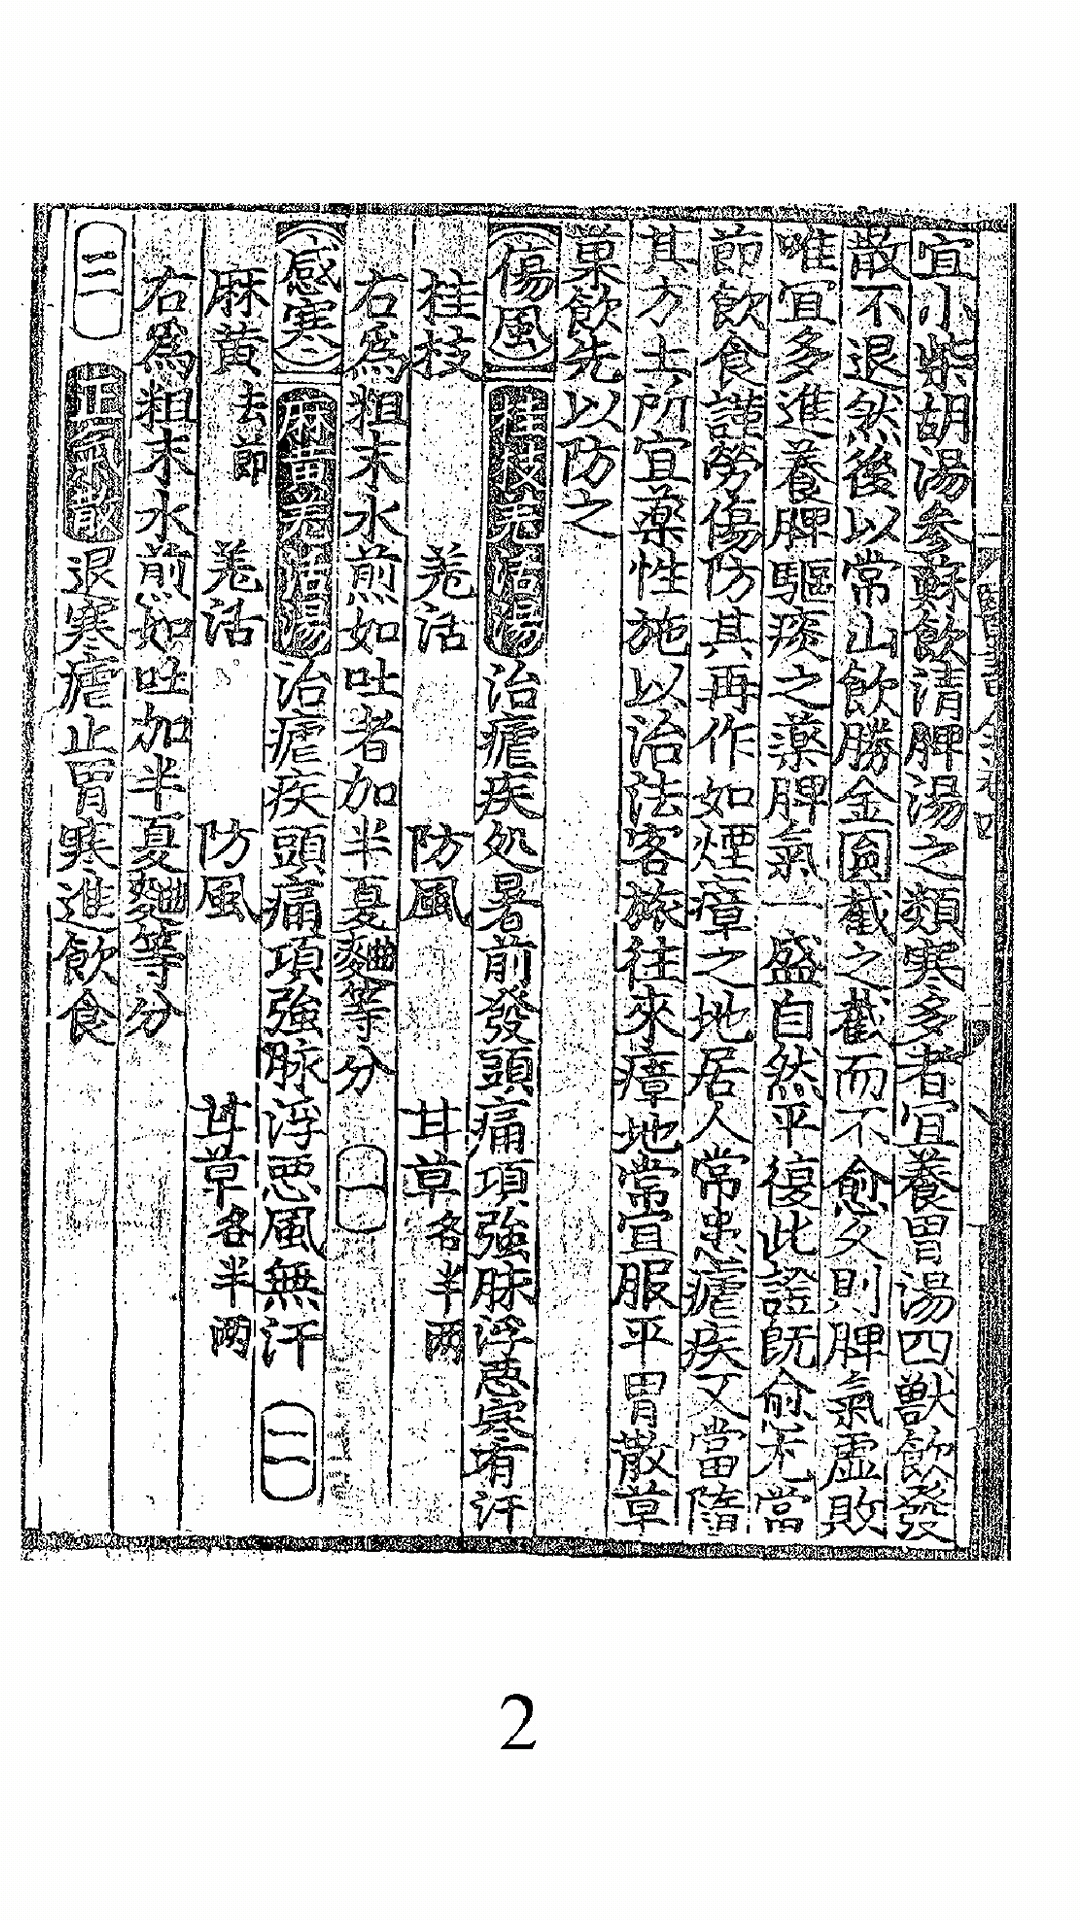 宜小柴胡湯参蘇飲清脾湯之類寒多者宜養胃湯四獸飲發
散不退然後以常山飲勝金圓截之截而不愈久則脾氣虛敗
唯宜多進養脾驅痰之藥脾氣一盛自然平復此證既愈尤當
節飲食謹勞傷防其再作如煙瘴之地居人常患瘧疾又當隨
其方土所宜藥性施以治法客旅往來瘴地常宜服平胃散草
菓飲先以防之
傷風 桂枝羌活湯 治瘧疾処暑前發頭痛項強脉浮惡寒有汗
桂枝 羌活 防風 甘草各半两
右爲粗末水煎如吐者加半夏麯等分 一
感寒 麻黄羌活湯 治瘧疾頭痛項強脉浮惡風無汗 二
麻黄去節 羌活 防風 甘草各半两
右爲粗末水煎如吐加半夏麯等分
三 正氣散 退寒瘧止胃寒進飲食
2